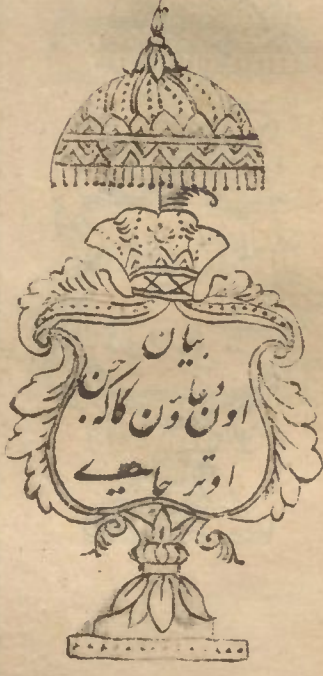 بیان
اون دعاؤن کا کہ جن
اوتر جایے